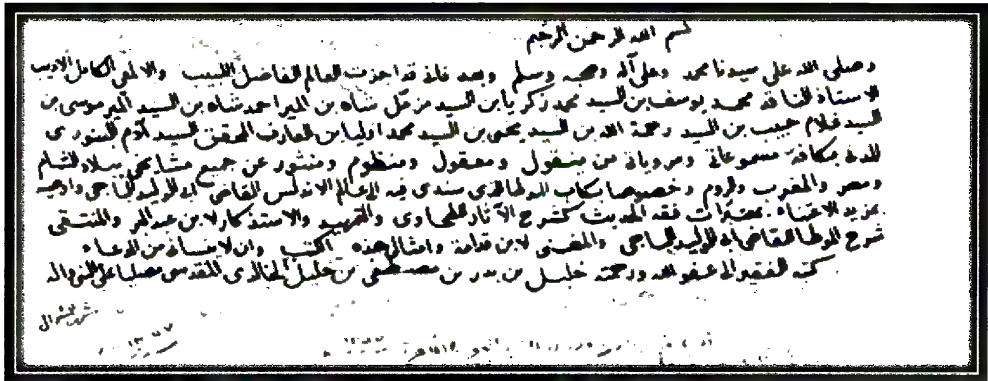 بسم الله الرحمن الرحيم
وصلى الله على سيدنا محمد وعلى آله وصحبه وسلم وبعد فانى قد اجزت العالم الفاضل اللبيب والالمعى الكامل الاديب
الاستاذ محمد يوسف بن السيد محمد زكريا بن السيد مزمل شاه بن المير احمد شاه بن السيد المير موسى بن
السيد غلام حبيب بن السيد رحمة الله بن السيد يحيى بن السيد محمد اوليا بن العارف المحقق السيد آدم البنورى
المدنى بكافة مسموعاتى ومروياتى من منقول ومعقول ومنظوم ومنثور عن جميع مشايخى ببلاد الشام
ومصر والمغرب والروم وخصوصا بكتاب الموطا الذى سندى فيه الى عالم الاندلس القاضى ابى الوليد الباجى واوصيه
بمزيد الاعتناء بمعتبرات فقه الحديث كشرح الآثار للطحاوى والتمهيد والاستذكار لابن عبد البر والمنتقى
شرح الموطا للقاضى ابى الوليد الباجى والمغنى لابن قدامة وامثال هذه الكتب وان لا ينسانى من الدعاء
كتبه الفقير الى عفو الله ورحمته خليل بن بدر بن مصطفى بن خليل الخالدى المقدسى مصليا على النبى وآله
شهر شوال
١٣٥٧